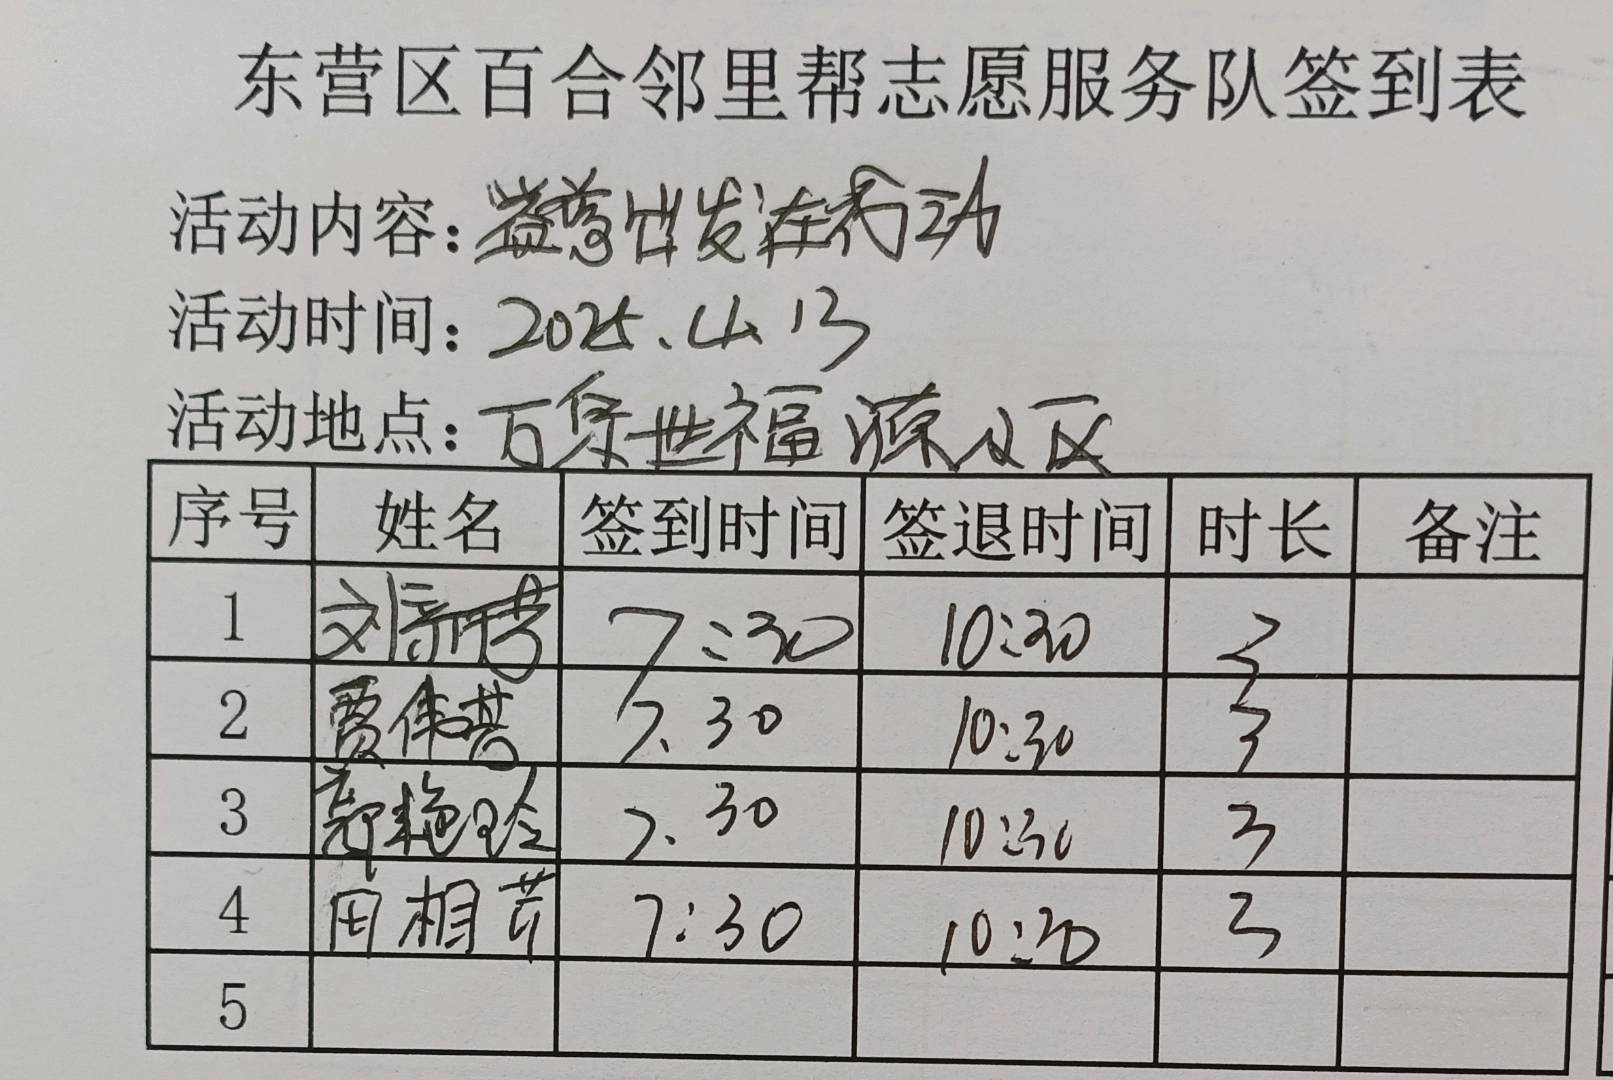 东营区百合邻里帮志愿服务队签到表
活动内容：益路出发 在行动
活动时间：2025.4.13
活动地点：万泉世福源小区
序号 姓名 签到时间 签退时间 时长 备注
1 刘新芳 7:30 10:30 3
2 贾伟 7.30 10:30 3
3 郭艳玲 7.30 10:30 3
4 田相芹 7:30 10:30 3
5